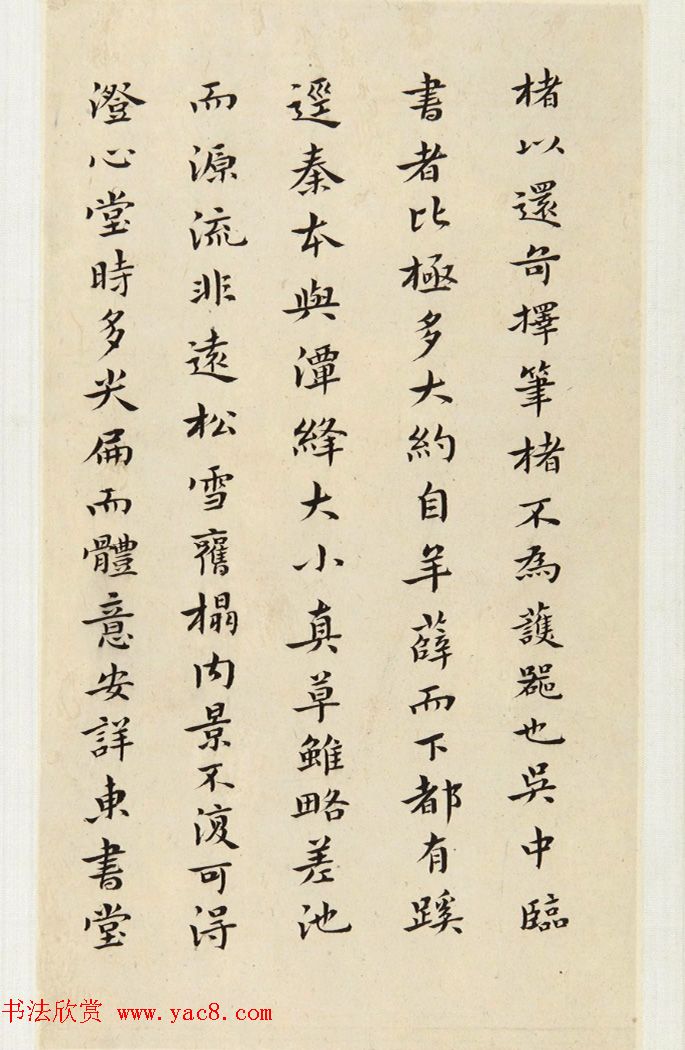 楮以還奇擇筆楮不為護短也吳中臨
書者比極多大約自羊薛而下都有蹊
逕秦本與潭絳大小真草雖略差池
而源流非遠松雪舊榻內景不復可得
澄心堂時多尖扁而體意安詳東書堂
书法欣赏 www.yac8.com